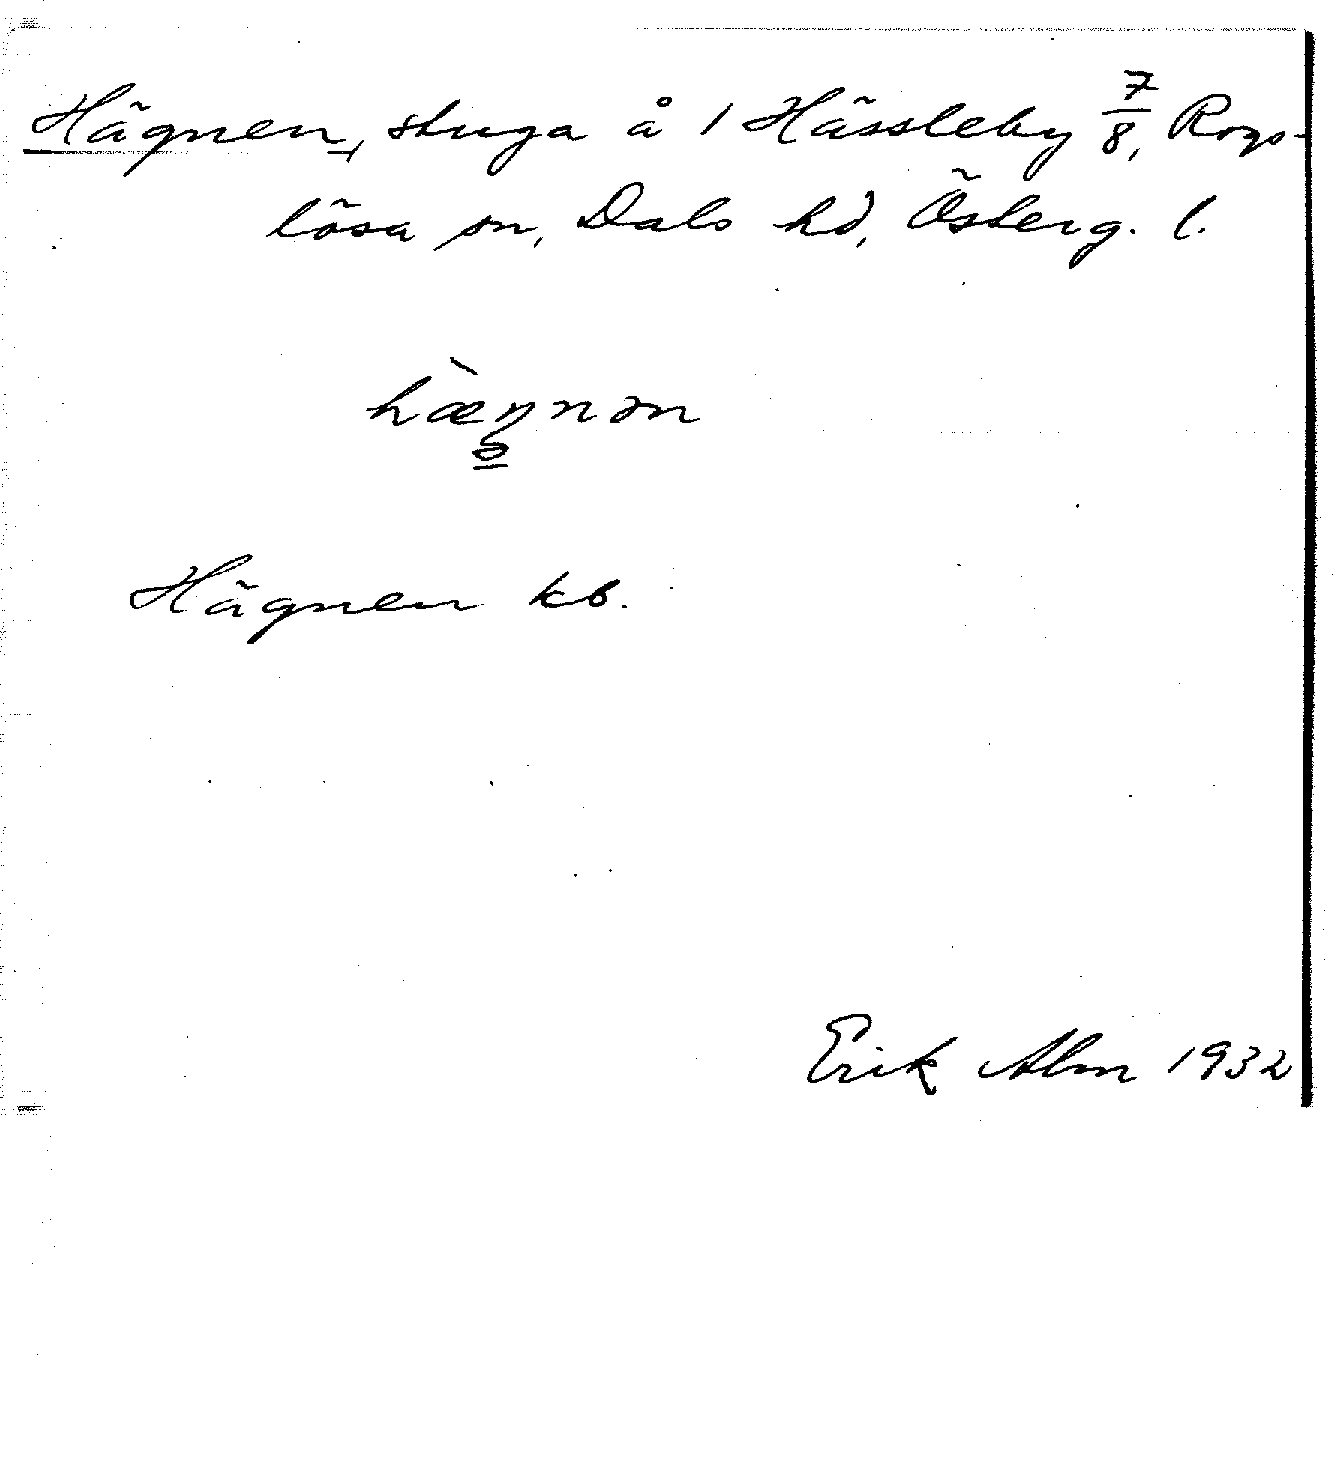 Hägnen, stuga å 1 Hässleby 7/8, Rogs-
lösa sn, Dals hd, Österg. l.
hæ̀ŋnən
Hägnen kb.
Erik Alm 1932